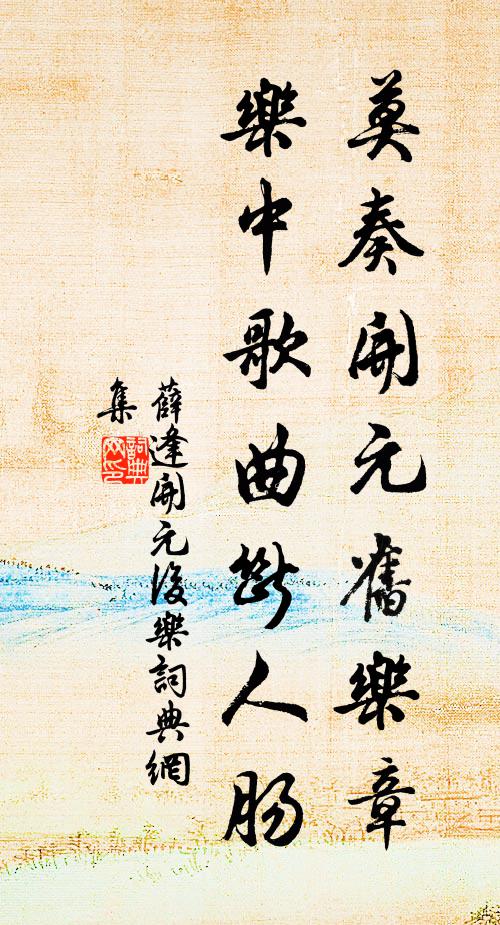 莫奏開元舊樂章
樂中歌曲斷人腸
薛逢開元後樂詞典網
集
詞典網印